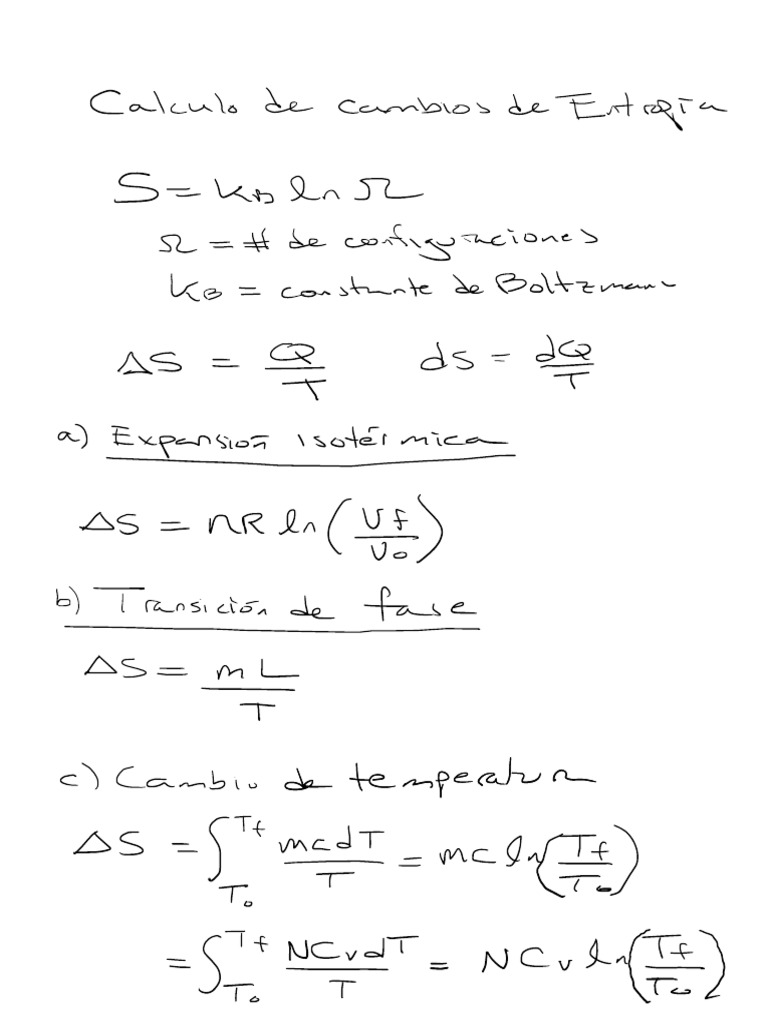 Calculo de cambios de Entropía
S = k_B ln Ω
Ω = # de configuraciones
k_B = constante de Boltzmann
ΔS = Q/T    dS = dQ/T
a) Expansión isotérmica
ΔS = nR ln(Vf/Vo)
b) Transición de fase
ΔS = mL/T
c) Cambio de temperatura
ΔS = ∫_{To}^{Tf} mcdT/T = mc ln(Tf/To)
= ∫_{To}^{Tf} NCvdT/T = NCv ln(Tf/To)